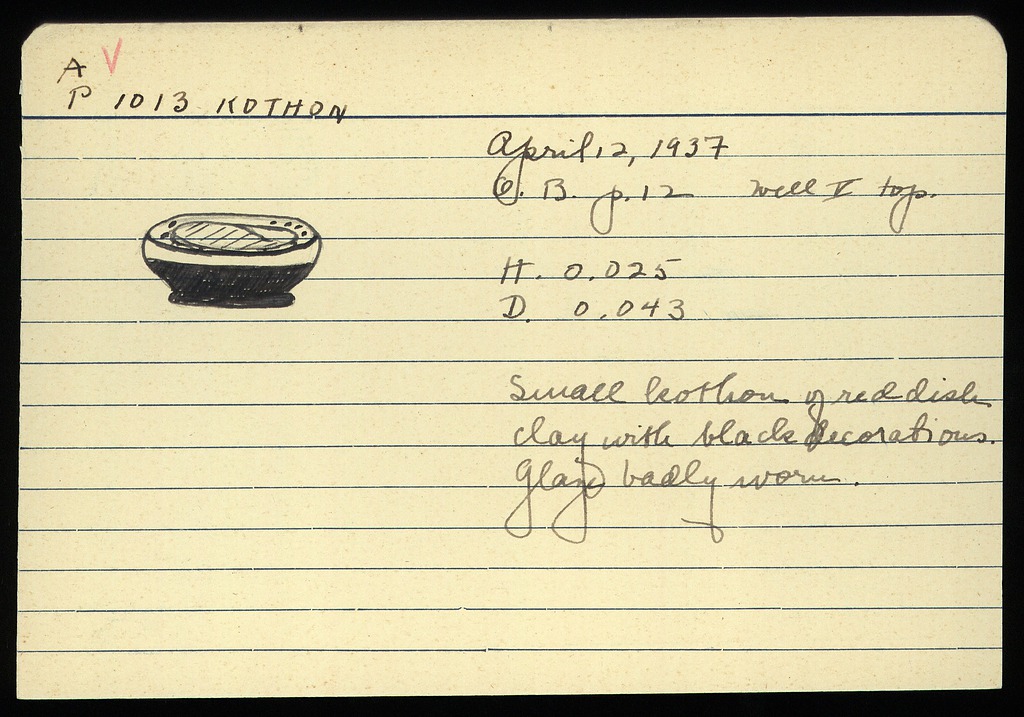 A V
P 1013 KOTHON
April 12, 1937
C. B. p. 12 well V top.
H. 0.025
D. 0.043
Small kothon of reddish
clay with black decorations.
Glaze badly worn.